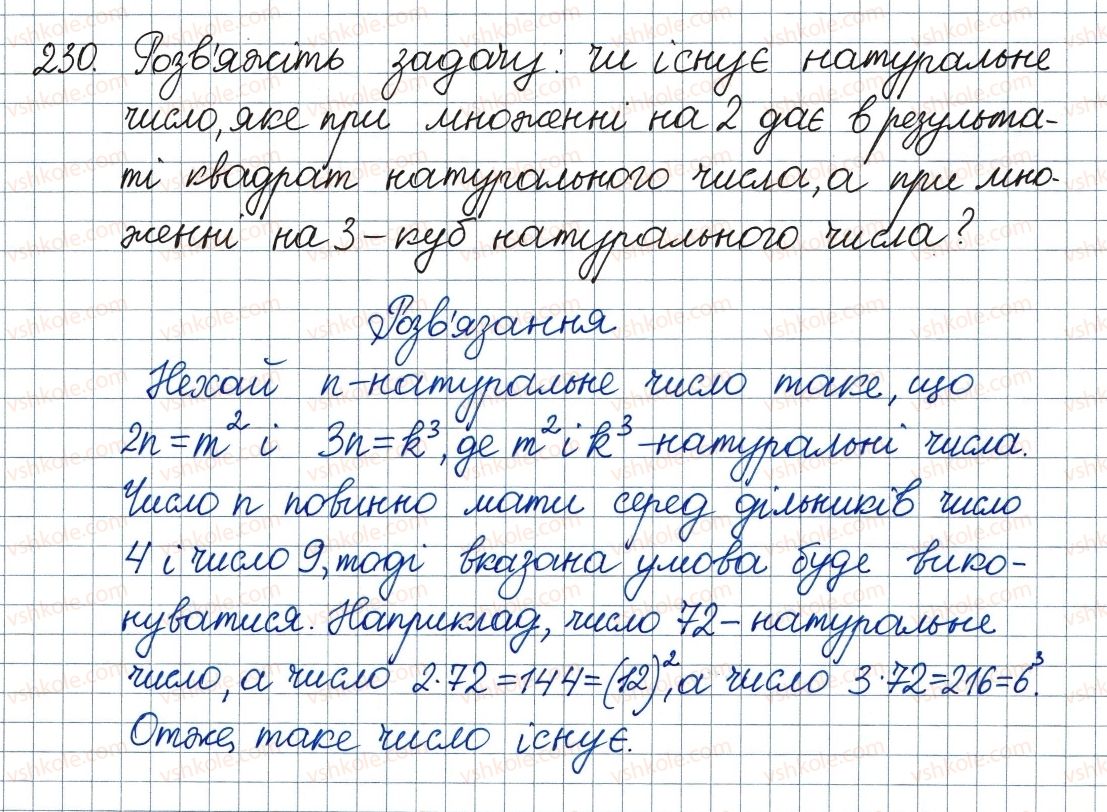 230. Розв'яжіть задачу: чи існує натуральне
число, яке при множенні на 2 дає в результа-
ті квадрат натурального числа, а при мно-
женні на 3 - куб натурального числа?
Розв'язання
Нехай n - натуральне число таке, що
2n = m² і 3n = k³, де m² і k³ - натуральні числа.
Число n повинно мати серед дільників число
4 і число 9, тоді вказана умова буде вико-
нуватися. Наприклад, число 72 - натуральне
число, а число 2·72 = 144 = (12)², а число 3·72 = 216 = 6³.
Отже, таке число існує.